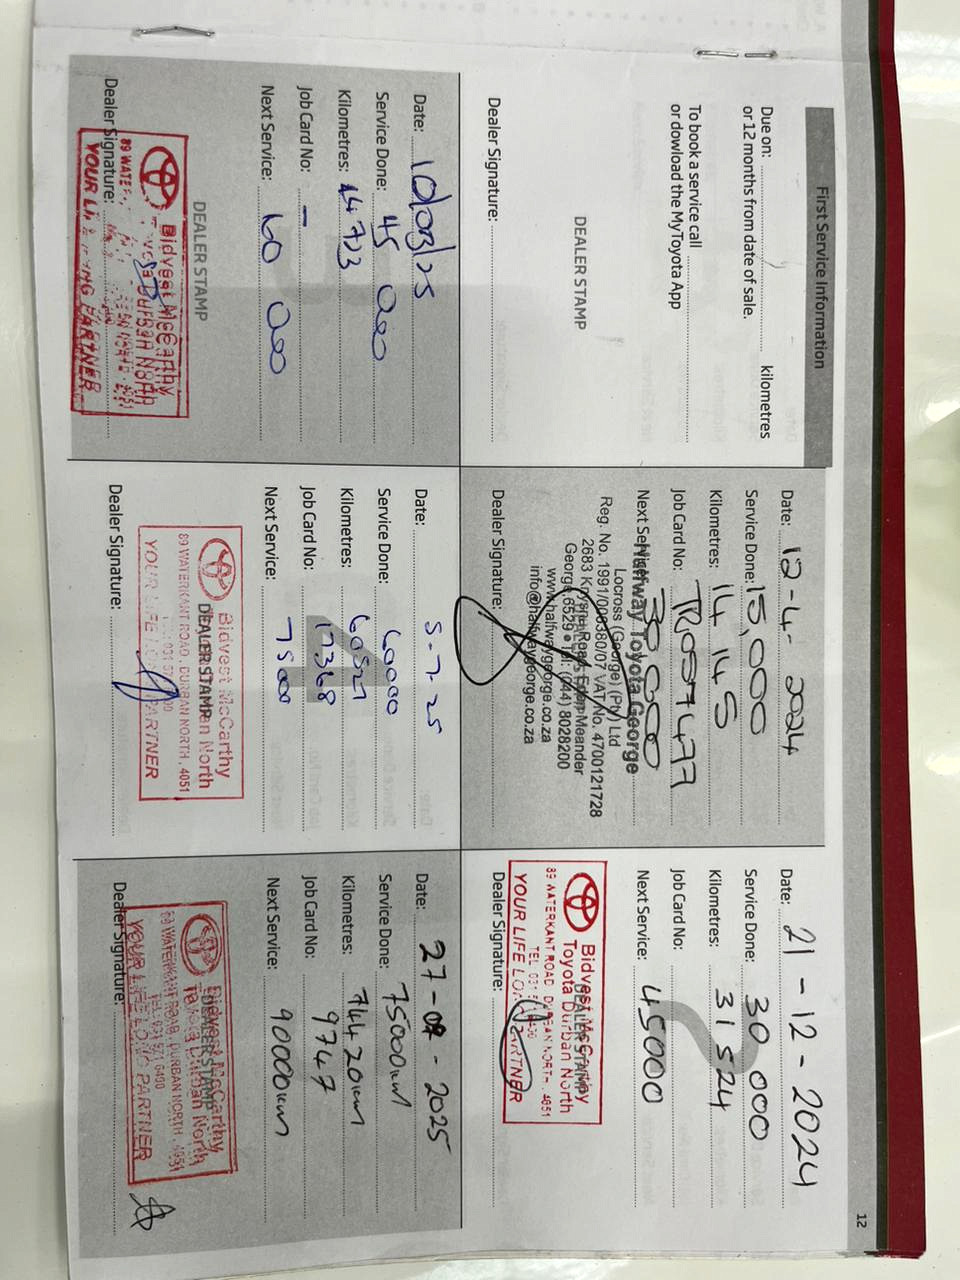 First Service Information
Due on: kilometres
or 12 months from date of sale.
To book a service call
or dowload the MyToyota App
DEALER STAMP
Dealer Signature:
Date: 12-4-2024
Service Done: 15,000
Kilometres: 14 145
Job Card No:
Next Service: 30 000
Halfway Toyota George
Locross (George) (Pty) Ltd
Reg. No. 1991/000380/07 VAT No. 4700121728
2683 Knysna Road, Eden Meander
George, 6529 • Tel: (044) 8028200
www.halfwaygeorge.co.za
info@halfwaygeorge.co.za
Dealer Signature:
Date: 21-12-2024
Service Done: 30 000
Kilometres: 31524
Job Card No:
Next Service: 45000
DEALER STAMP
Bidvest McCarthy
Toyota Durban North
89 WATERKANT ROAD DURBAN NORTH, 4051
YOUR LIFE LONG PARTNER
Dealer Signature:
Date: 10/03/25
Service Done: 45 000
Kilometres: 44723
Job Card No: -
Next Service: 60 000
DEALER STAMP
Bidvest McCarthy
Toyota Durban North
YOUR LIFE LONG PARTNER
Dealer Signature:
Date: 5-7-25
Service Done: 60000
Kilometres: 60527
Job Card No: 17368
Next Service: 75000
4
DEALER STAMP
Bidvest McCarthy
Toyota Durban North
89 WATERKANT ROAD, DURBAN NORTH, 4051
YOUR LIFE LONG PARTNER
Dealer Signature:
Date: 27-09-2025
Service Done: 75000km
Kilometres: 74420km
Job Card No: 9747
Next Service: 90000km
DEALER STAMP
Bidvest McCarthy
Toyota Durban North
89 WATERKANT ROAD, DURBAN NORTH, 4051
YOUR LIFE LONG PARTNER
Dealer Signature:
12